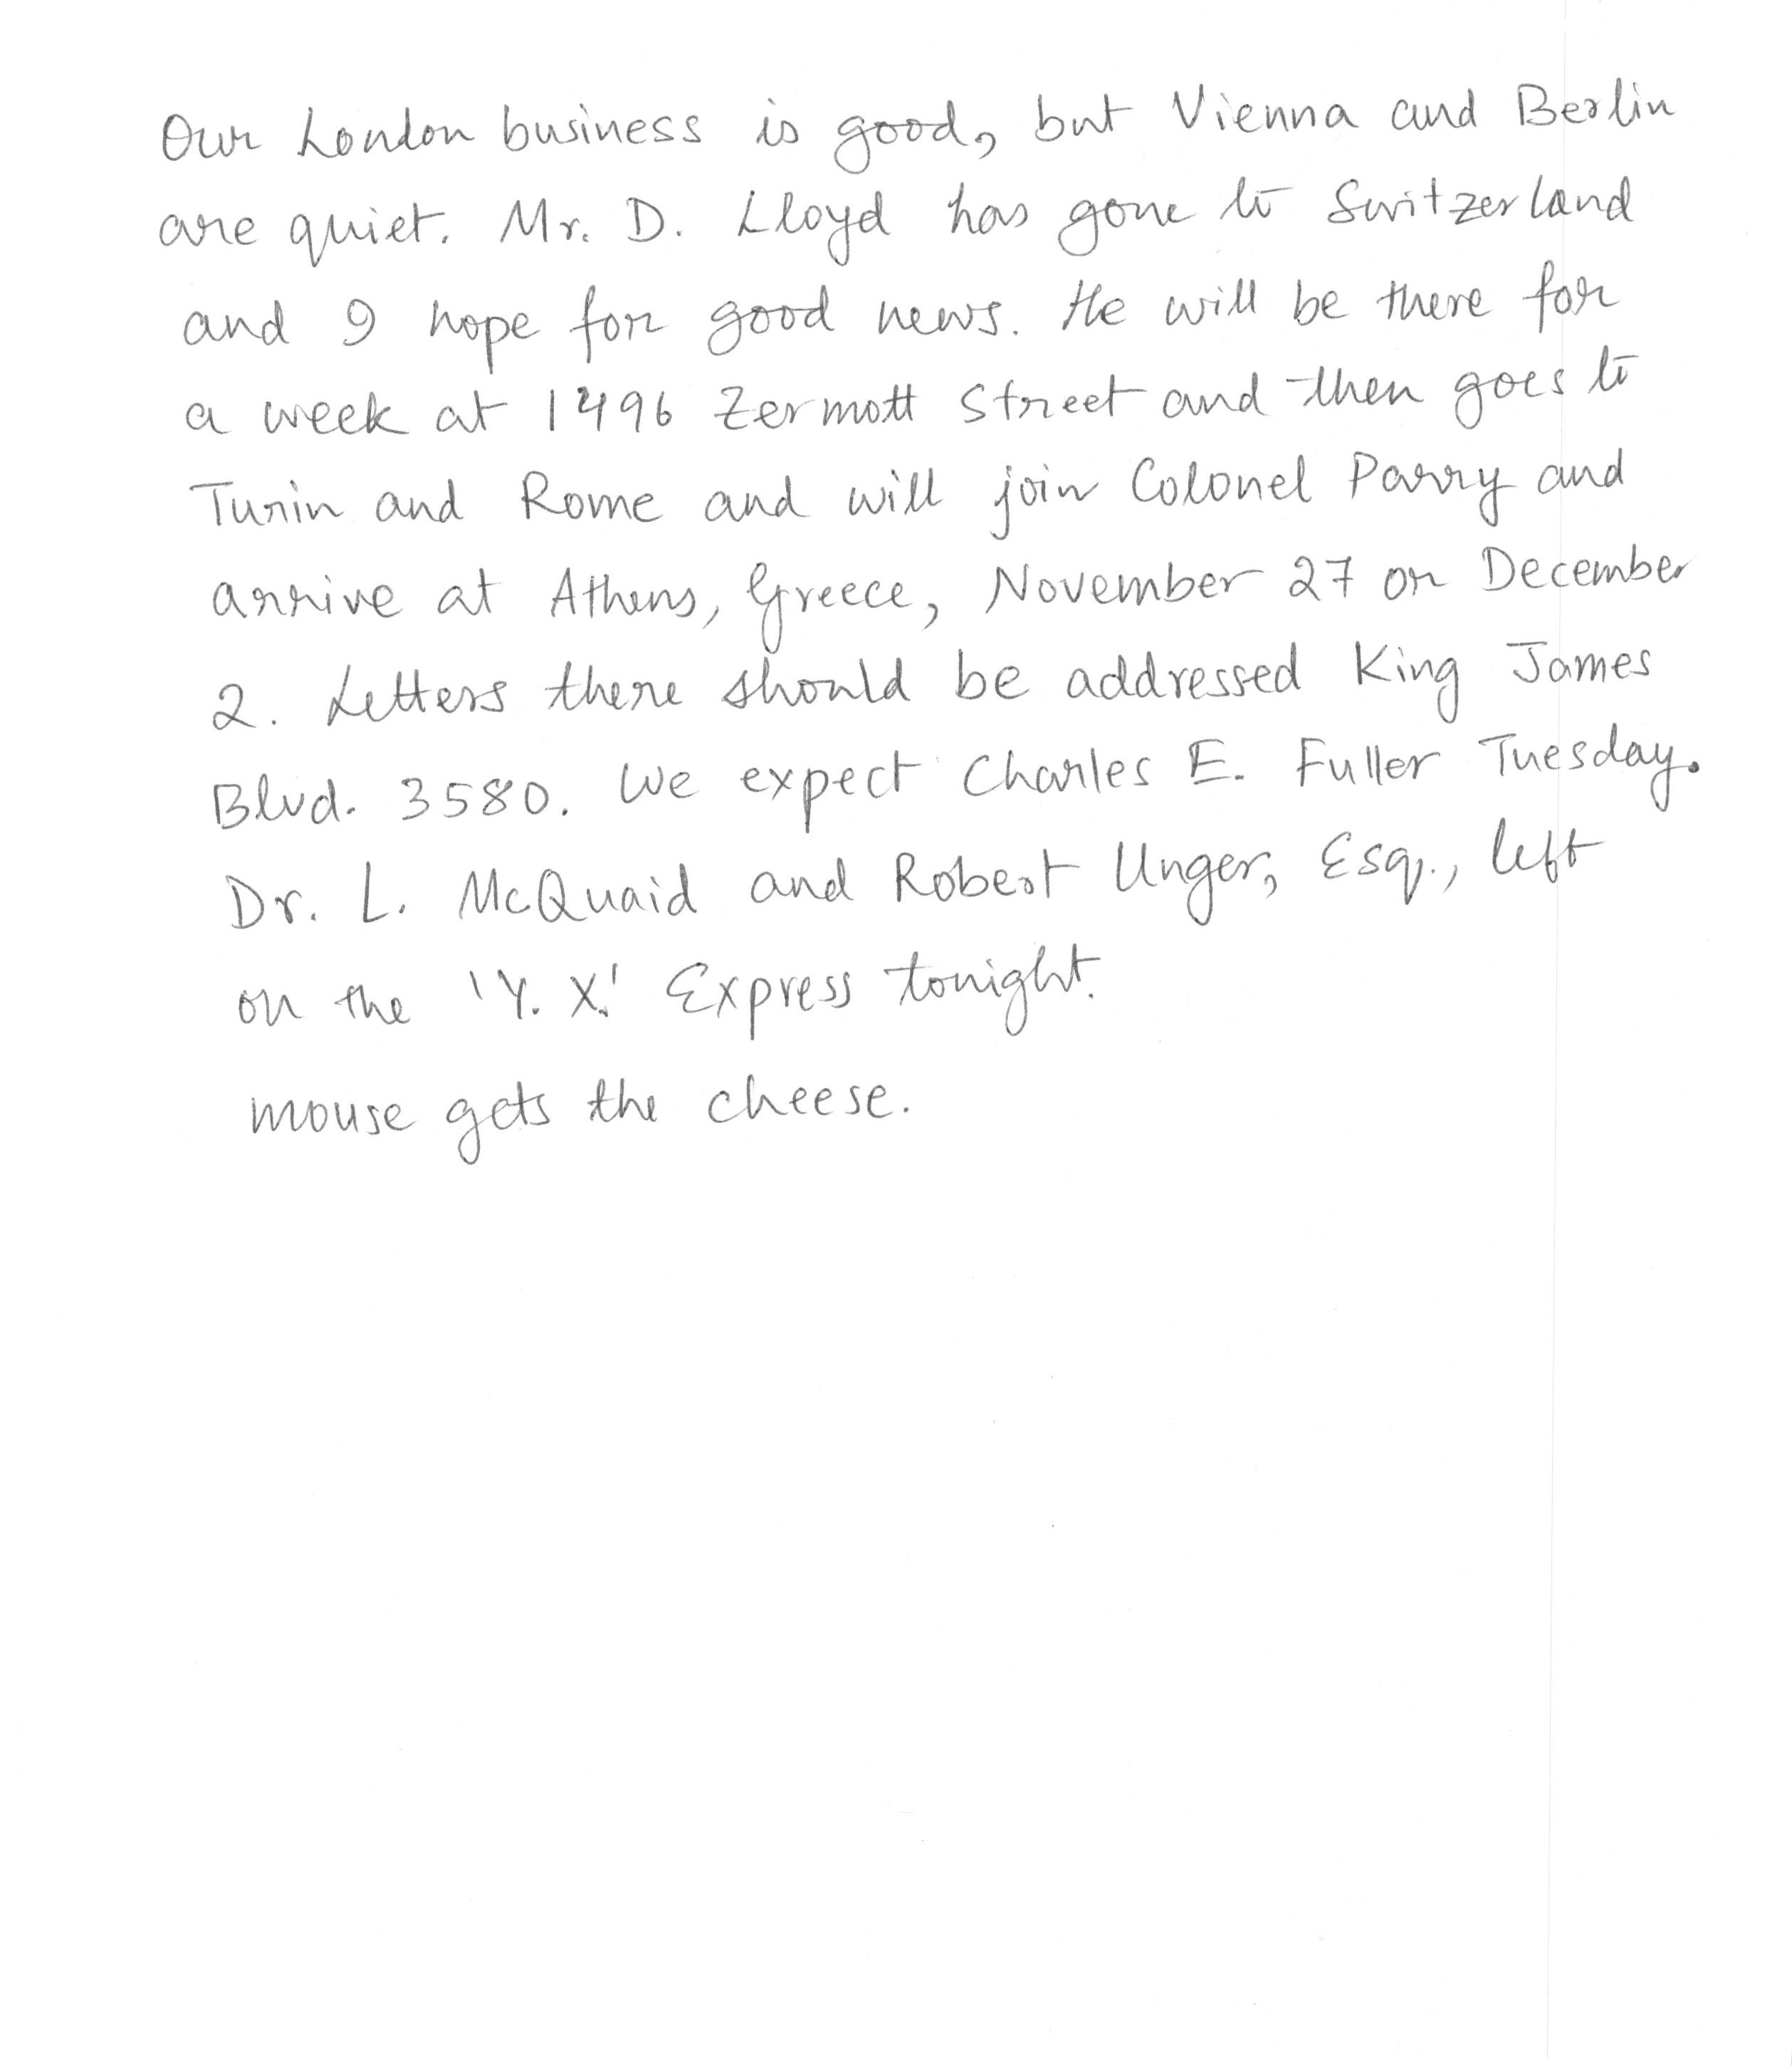 Our London business is good, but Vienna and Berlin
are quiet. Mr. D. Lloyd has gone to Switzerland
and I hope for good news. He will be there for
a week at 1496 Zermott Street and then goes to
Turin and Rome and will join Colonel Parry and
arrive at Athens, Greece, November 27 or December
2. Letters there should be addressed King James
Blvd. 3580. We expect Charles E. Fuller Tuesday.
Dr. L. McQuaid and Robert Unger, Esq., left
on the 'Y. X.' Express tonight.
mouse gets the cheese.